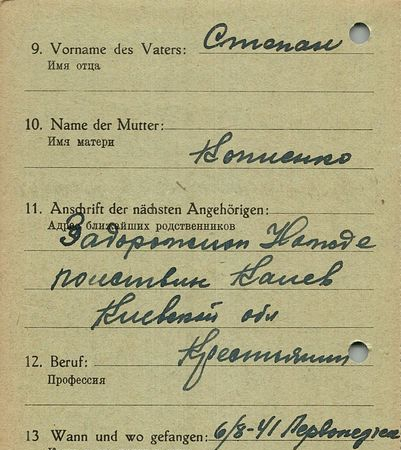 9. Vorname des Vaters: Степан
Имя отца
10. Name der Mutter:
Имя матери
Кописенко
11. Anschrift der nächsten Angehörigen:
Адрес ближайших родственников
Задорожная
Канев
Киевской обл
12. Beruf: Крестьянин
Профессия
13 Wann und wo gefangen: 6/8-41